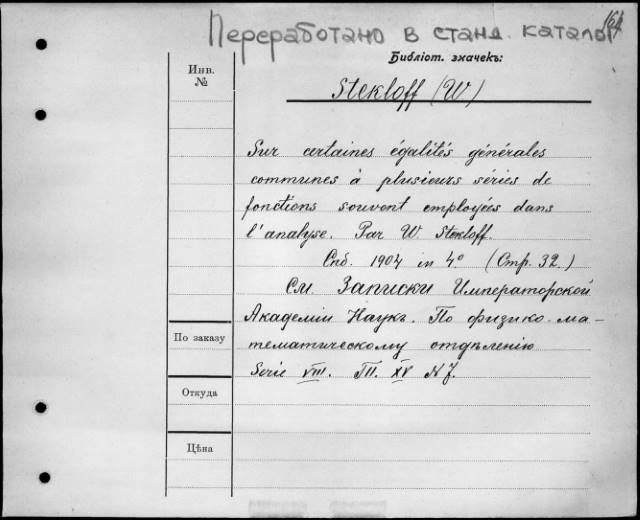 Переработано в станд. каталог
164
Библіот. значекъ:
Инв.
№
Stekloff (W)
Sur certaines égalités générales
communes à plusieurs séries de
fonctions souvent employées dans
l'analyse. Par W. Stekloff.
Спб. 1904 in 4° (Стр. 32.)
См. Записки Императорской
Академіи Наукъ. По физико-ма-
тематическому отдѣленію
Serie VIII. Т. XV N 7.
По заказу
Откуда
Цѣна